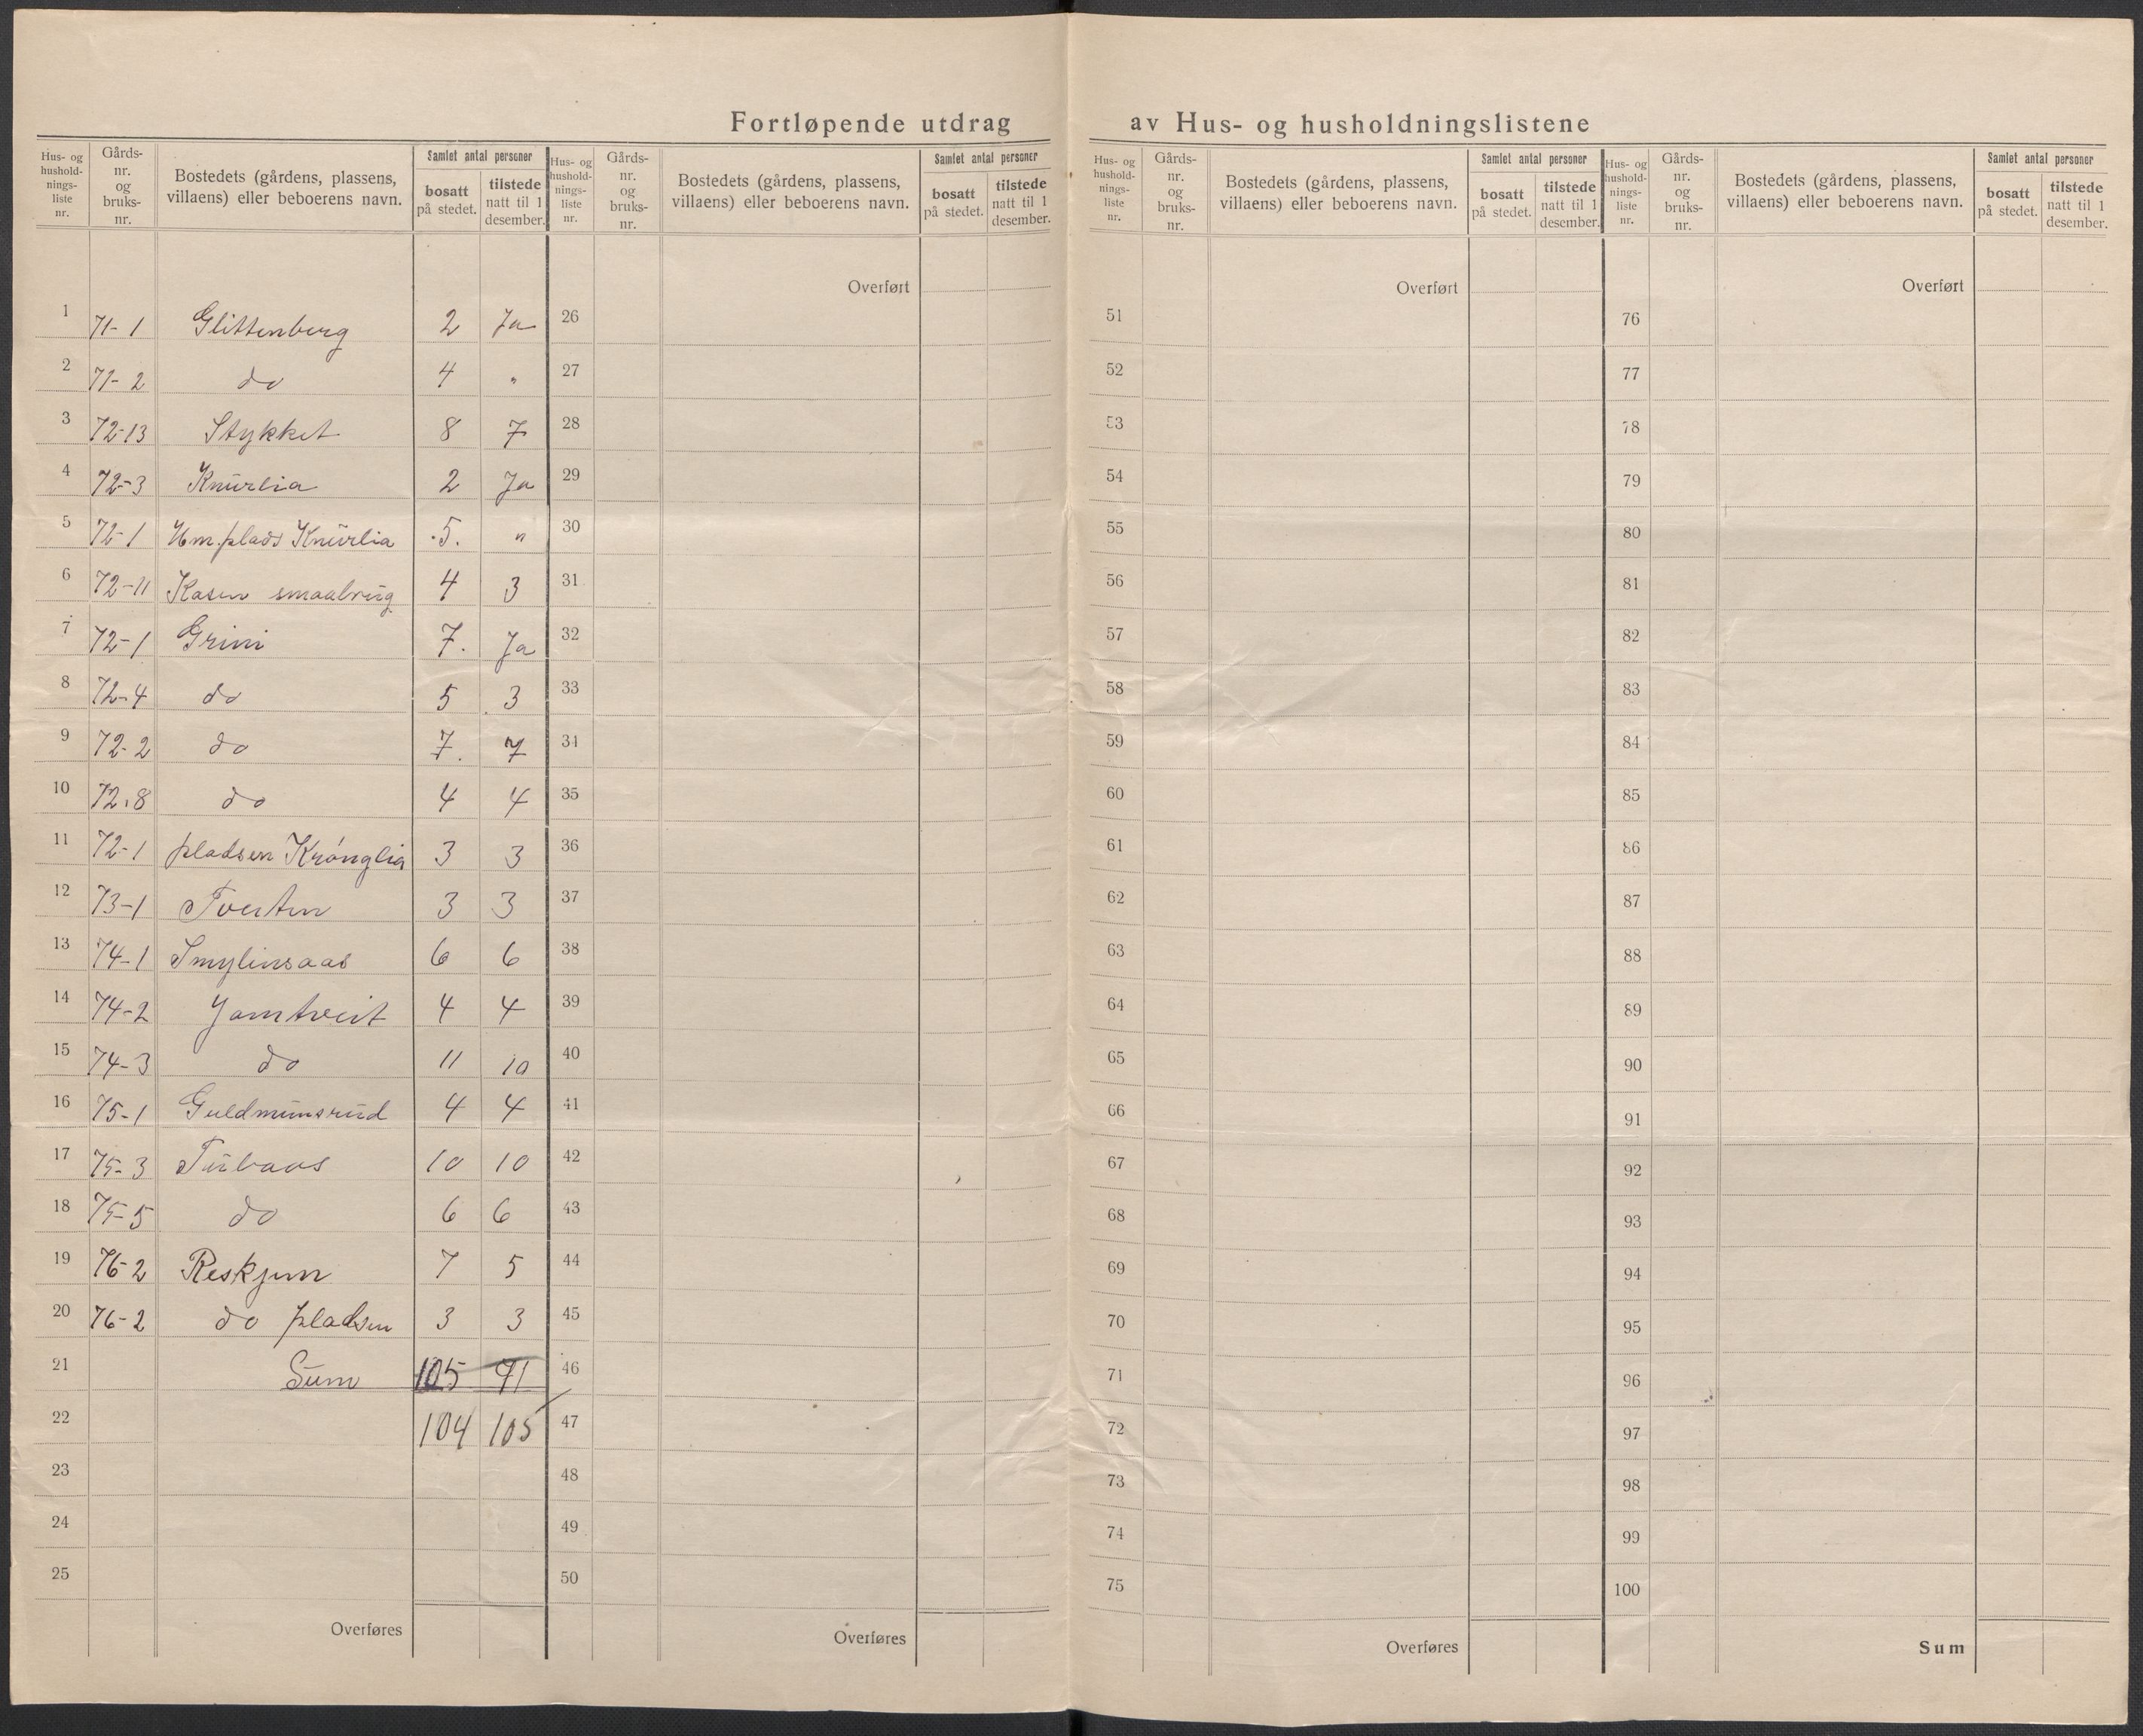 Fortløpende utdrag av Hus- og husholdningslistene
Hus- og hushold-nings-liste nr. | Gårds-nr. og bruks-nr. | Bostedets (gårdens, plassens, villaens) eller beboerens navn. | Samlet antal personer | bosatt på stedet. | tilstede natt til 1 desember.
Hus- og hushold-nings-liste nr. | Gårds-nr. og bruks-nr. | Bostedets (gårdens, plassens, villaens) eller beboerens navn. | Samlet antal personer | bosatt på stedet. | tilstede natt til 1 desember.
Hus- og hushold-nings-liste nr. | Gårds-nr. og bruks-nr. | Bostedets (gårdens, plassens, villaens) eller beboerens navn. | Samlet antal personer | bosatt på stedet. | tilstede natt til 1 desember.
Hus- og hushold-nings-liste nr. | Gårds-nr. og bruks-nr. | Bostedets (gårdens, plassens, villaens) eller beboerens navn. | Samlet antal personer | bosatt på stedet. | tilstede natt til 1 desember.
1 71-1 Glittenberg 2 Ja
2 71-2 do 4 "
3 72-13 Stykket 8 7
4 72-3 Knurlia 2 Ja
5 72-1 Hm.plads Knurlia 5. "
6 72-11 Kasen smaabrug 4 3
7 72-1 Grini 7. Ja
8 72-4 do 5 3
9 72-2 do 7. 7
10 72.8 do 4 4
11 72-1 pladsen Krónglia 3 3
12 73-1 Tveiten 3 3
13 74-1 Smylinsaas 6 6
14 74-2 Jamtveit 4 4
15 74-3 do 11 10
16 75-1 Guldmunsrud 4 4
17 75-3 Tubaas 10 10
18 75-5 do 6 6
19 76-2 Reskjem 7 5
20 76-2 do pladsen 3 3
21 Sum 105 91
22 104 105
23
24
25
Overføres
Overført
26
27
28
29
30
31
32
33
34
35
36
37
38
39
40
41
42
43
44
45
46
47
48
49
50
Overføres
Overført
51
52
53
54
55
56
57
58
59
60
61
62
63
64
65
66
67
68
69
70
71
72
73
74
75
Overføres
Overført
76
77
78
79
80
81
82
83
84
85
86
87
88
89
90
91
92
93
94
95
96
97
98
99
100
Sum